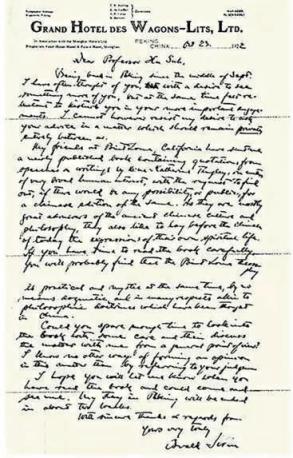 GRAND HOTEL DES WAGONS-LITS, LTD.
PEKING
CHINA. Oct 23. 1922
Dear Professor Hu Suh,
Being back in Peking since the middle of Sept.
I have often thought of you with a desire to see
something more of you, but at the same time felt re-
luctant to broach upon your more important engage-
ments. I cannot however resist my desire to ask
your advice in a matter which should remain private
entirely between us.
My friends at Point Loma, California have sent me
a newly published book containing quotations from
speeches & writings by Katherine Tingley, in order
of very broad human interest with the request to find
out, if there would be any possibility of publishing
a chinese edition of the same. As they are mostly
great admirers of the ancient chinese culture and
philosophy, they also like to lay before the chinese
of today the expression of their own spiritual life.
If you have time to read the book carefully,
you will probably find that the Point Loma
is practical and mystic at the same time, by no
means dogmatic, and in many respects akin to
philosophic doctrines which have been taught
in China.
Could you spare enough time to look into
the book with some care and then discuss
the matter with me from a general point of view?
I know no other way of forming an opinion
in this matter than by referring to your judgment
I hope you will let me know when you
have read the book and could come and
see me. My stay in Peking will be ended
in about two weeks.
With sincere thanks & regards from
Yours very truly
Osvald Sirén